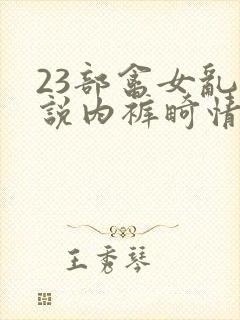 23部畜女乱
说内裤畸情
王秀琴